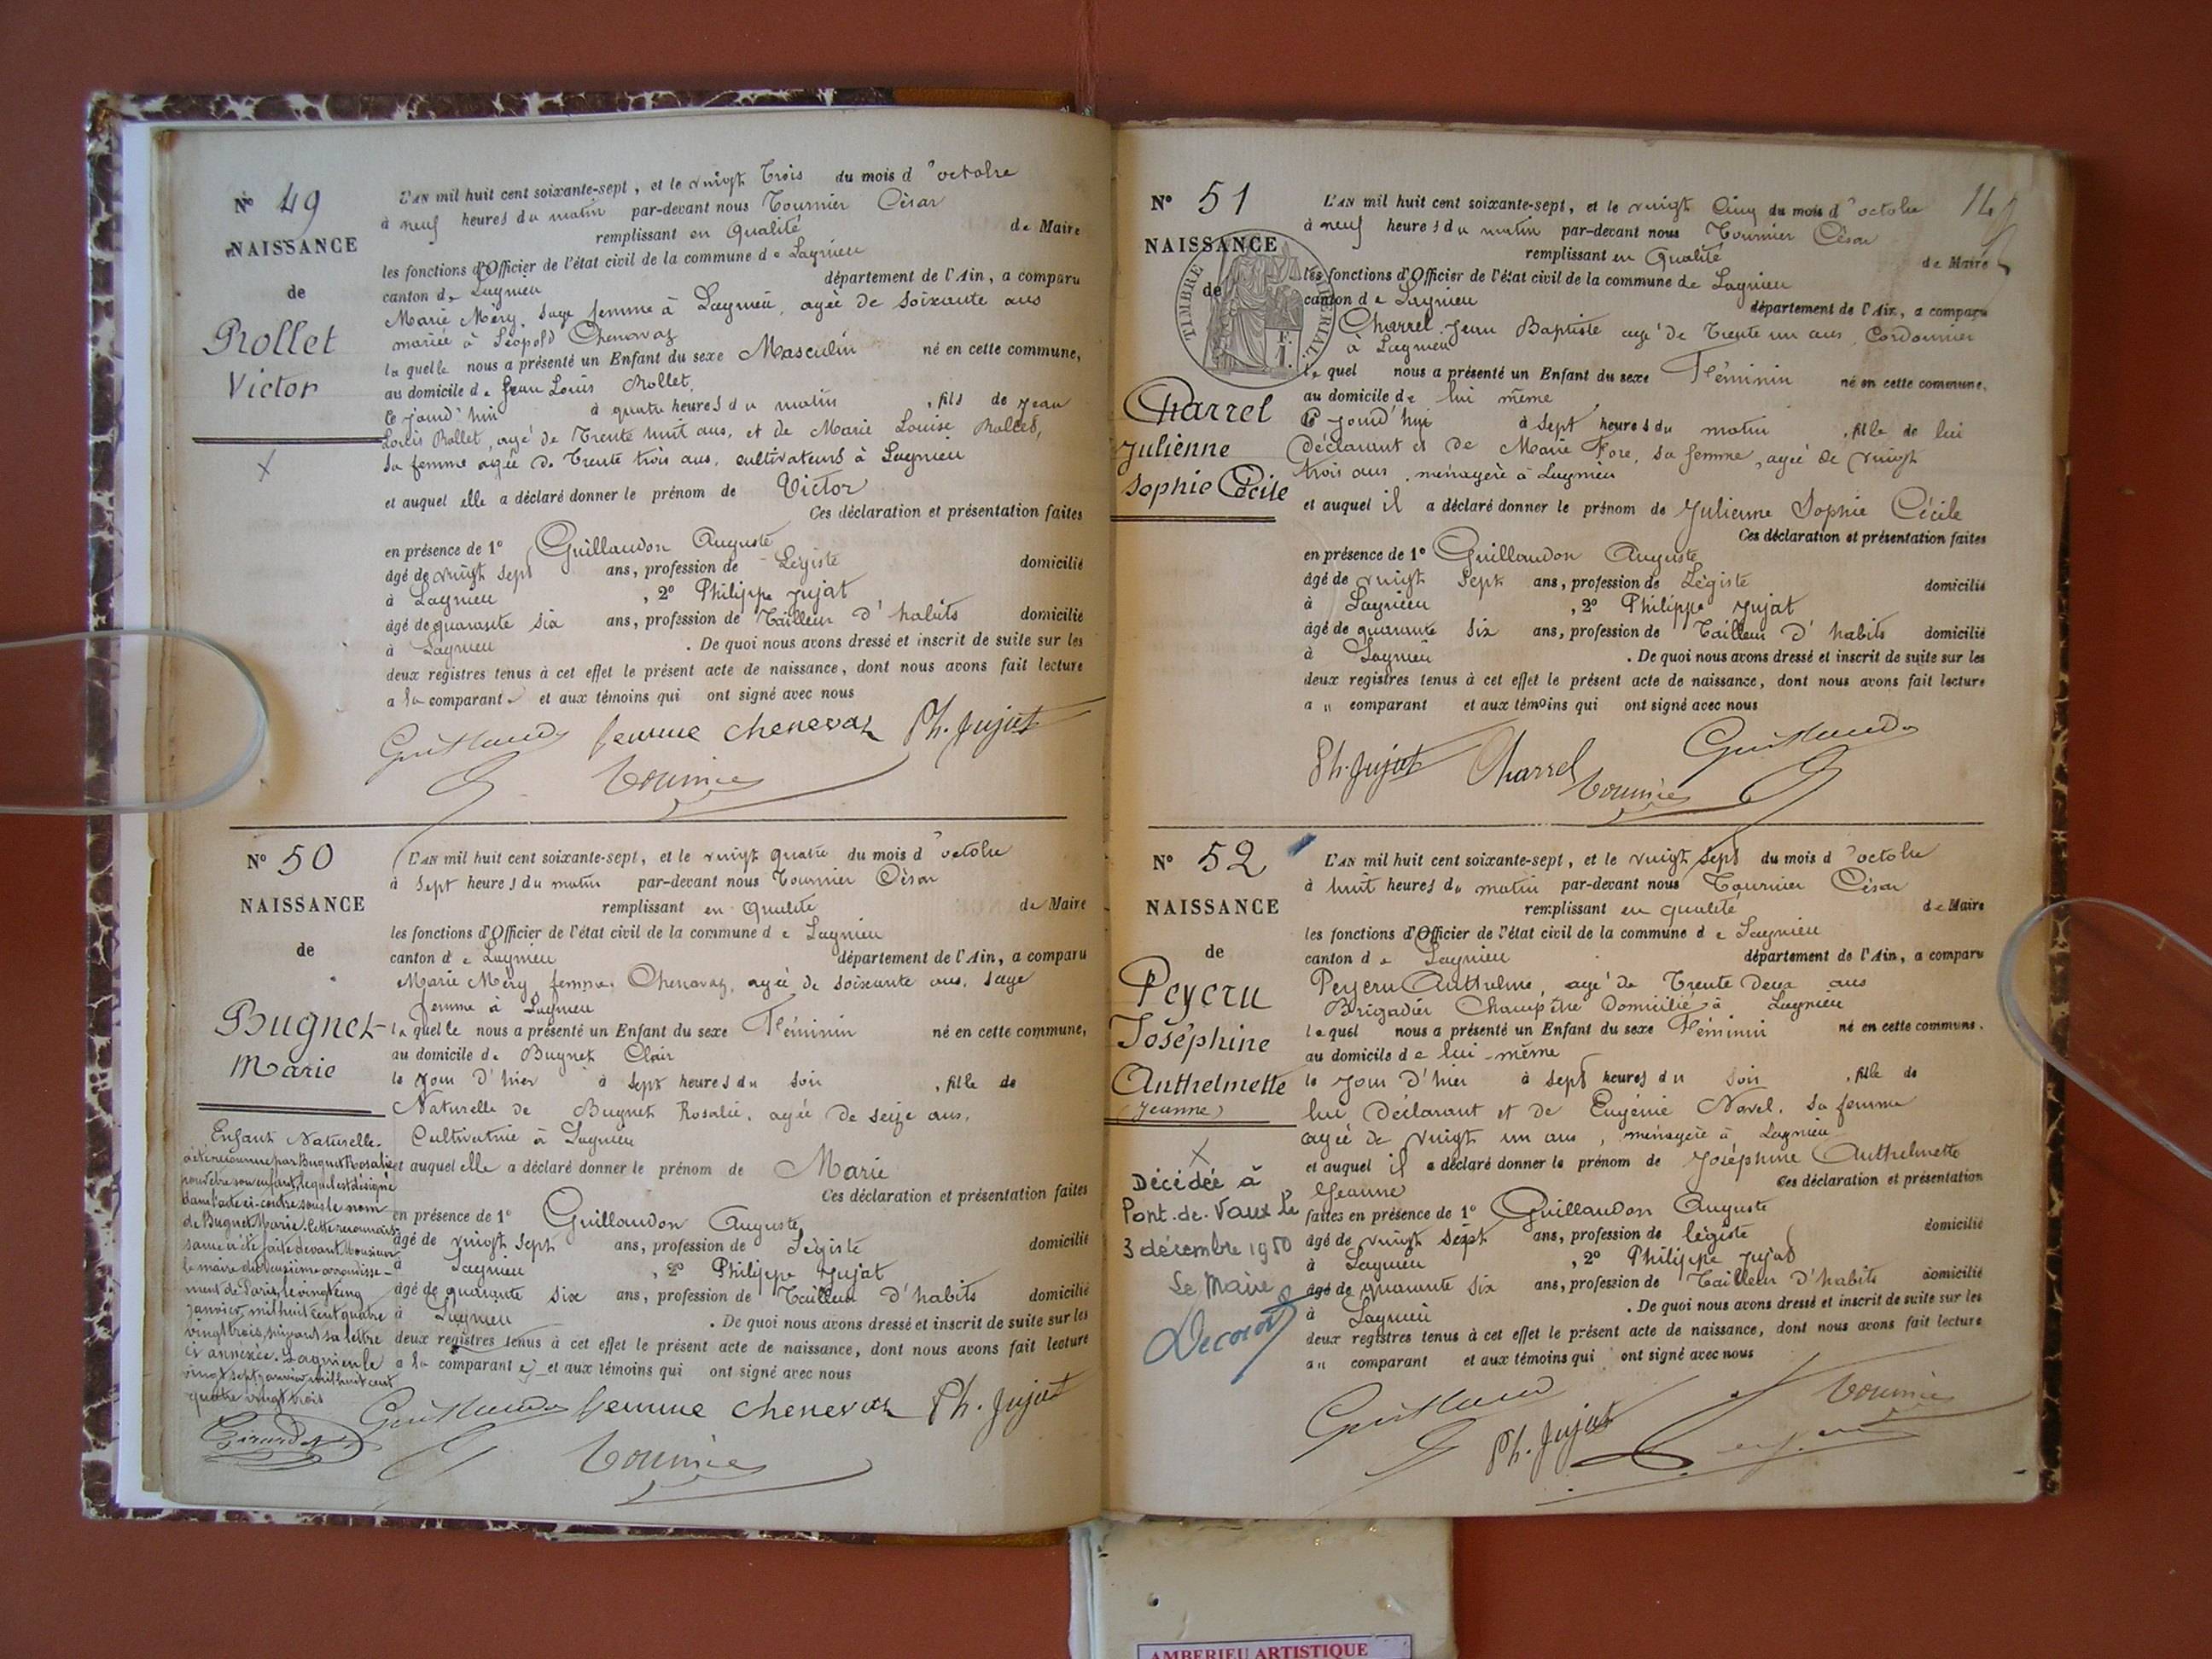 N° 49
NAISSANCE
de
Rollet
Victor
L'AN mil huit cent soixante-sept, et le vingt Trois du mois d'octobre
à neuf heures du matin par-devant nous Tournier César
remplissant en Qualité de Maire
les fonctions d'Officier de l'état civil de la commune de Lagnieu
canton de Lagnieu département de l'Ain, a comparu
Marie Méry, Sage femme à Lagnieu, agée de soixante ans
mariée à Léopold Chenavaz
laquelle nous a présenté un Enfant du sexe Masculin né en cette commune,
au domicile de Jean Louis Rollet,
ce jourd'hui à quatre heures du matin, fils de Jean
Louis Rollet, agé de Trente huit ans, et de Marie Louise
sa femme agée de Trente trois ans, cultivateurs à Lagnieu
et auquel elle a déclaré donner le prénom de Victor
Ces déclaration et présentation faites
en présence de 1° Guillaudon Auguste
âgé de vingt sept ans, profession de Légiste domicilié
à Lagnieu, 2° Philippe Jujat
âgé de quarante six ans, profession de Tailleur d'habits domicilié
à Lagnieu. De quoi nous avons dressé et inscrit de suite sur les
deux registres tenus à cet effet le présent acte de naissance, dont nous avons fait lecture
a la comparante et aux témoins qui ont signé avec nous
Guillaudon femme chenevaz Ph. Jujat
Tournier
N° 50
NAISSANCE
de
Bugnet
Marie
Enfant Naturelle.
a été reconnue par Bugnet Rosalie
pour être son enfant, lequel est désigné
dans l'acte ci-contre sous le nom
de Bugnet Marie. Cette reconnais-
sance a été faite devant Monsieur
le maire du deuxième arrondisse-
ment de Paris, le vingt cinq
janvier mil huit cent quatre
vingt trois, suivant sa lettre
ci annexée. Lagnieu le
vingt sept janvier mil huit cent
quatre vingt trois
L'AN mil huit cent soixante-sept, et le vingt quatre du mois d'octobre
à sept heures du matin par-devant nous Tournier César
remplissant en qualité de Maire
les fonctions d'Officier de l'état civil de la commune de Lagnieu
canton de Lagnieu département de l'Ain, a comparu
Marie Méry femme Chenavaz, agée de soixante ans, sage
femme à Lagnieu
laquelle nous a présenté un Enfant du sexe Féminin né en cette commune,
au domicile de Bugnet Clair
le jour d'hier à sept heures du soir, fille de
Naturelle de Bugnet Rosalie, agée de seize ans,
Cultivatrice à Lagnieu
et auquel elle a déclaré donner le prénom de Marie
Ces déclaration et présentation faites
en présence de 1° Guillaudon Auguste
âgé de vingt sept ans, profession de Légiste domicilié
à Lagnieu, 2° Philippe Jujat
âgé de quarante six ans, profession de Tailleur d'habits domicilié
à Lagnieu. De quoi nous avons dressé et inscrit de suite sur les
deux registres tenus à cet effet le présent acte de naissance, dont nous avons fait lecture
a la comparante et aux témoins qui ont signé avec nous
Guillaudon femme chenevaz Ph. Jujat
Tournier
N° 51
NAISSANCE
de
TIMBRE IMPÉRIAL
1 F.
Charrel
Julienne
Sophie Cécile
L'AN mil huit cent soixante-sept, et le vingt Cinq du mois d'octobre
à neuf heures du matin par-devant nous Tournier César
remplissant en Qualité de Maire
les fonctions d'Officier de l'état civil de la commune de Lagnieu
canton de Lagnieu département de l'Ain, a comparu
Charrel Jean Baptiste agé de Trente un ans, Cordonnier
à Lagnieu
lequel nous a présenté un Enfant du sexe Féminin né en cette commune.
au domicile de lui même
ce jourd'hui à sept heures du matin, fille de lui
Déclarant et de Marie Fore, sa femme, agée de vingt
trois ans, ménagère à Lagnieu
et auquel il a déclaré donner le prénom de Julienne Sophie Cécile
Ces déclaration et présentation faites
en présence de 1° Guillaudon Auguste
âgé de vingt sept ans, profession de Légiste domicilié
à Lagnieu, 2° Philippe Jujat
âgé de quarante six ans, profession de Tailleur d'habits domicilié
à Lagnieu. De quoi nous avons dressé et inscrit de suite sur les
deux registres tenus à cet effet le présent acte de naissance, dont nous avons fait lecture
au comparant et aux témoins qui ont signé avec nous
Ph. Jujat Charrel Guillaudon
Tournier
N° 52
NAISSANCE
de
Peyeru
Joséphine
Anthelmette
(Jeanne)
Décédée à
Pont-de-Vaux le
3 décembre 1950
Le Maire
L'AN mil huit cent soixante-sept, et le vingt sept du mois d'octobre
à huit heures du matin par-devant nous Tournier César
remplissant en qualité de Maire
les fonctions d'Officier de l'état civil de la commune de Lagnieu
canton de Lagnieu département de l'Ain, a comparu
Peyeru Anthelme, agé de Trente Deux ans
Brigadier Champêtre Domicilié à Lagnieu
lequel nous a présenté un Enfant du sexe Féminin né en cette commune.
au domicile de lui-même
le jour d'hier à sept heures du soir, fille de
lui Déclarant et de Eugénie Novel, sa femme
agée de vingt un ans, ménagère à Lagnieu
et auquel il a déclaré donner le prénom de Joséphine Anthelmette
Jeanne Ces déclaration et présentation
faites en présence de 1° Guillaudon Auguste
âgé de vingt sept ans, profession de légiste domicilié
à Lagnieu, 2° Philippe Jujat
âgé de quarante six ans, profession de Tailleur d'habits domicilié
à Lagnieu. De quoi nous avons dressé et inscrit de suite sur les
deux registres tenus à cet effet le présent acte de naissance, dont nous avons fait lecture
au comparant et aux témoins qui ont signé avec nous
Guillaudon Ph. Jujat Tournier
AMBERIEU ARTISTIQUE